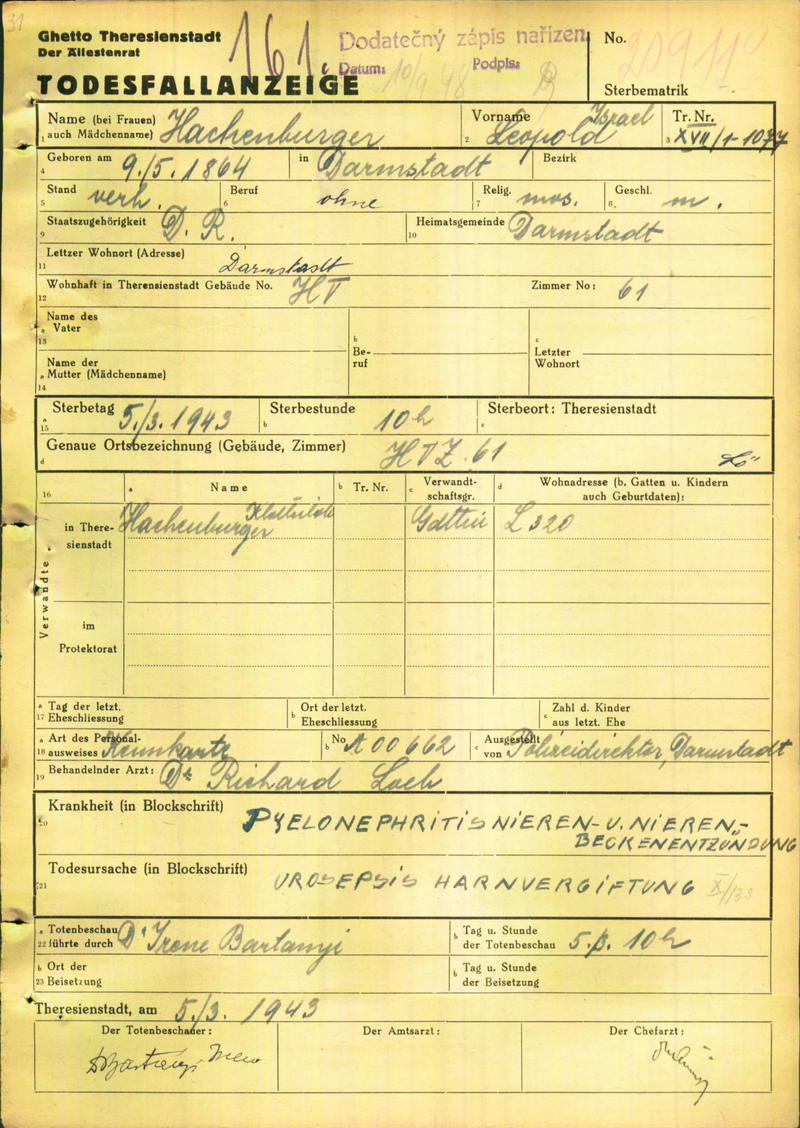 31
Ghetto Theresienstadt
Der Ältestenrat
161.
Dodatečný zápis nařízen
Datum: 10/9 48 Podpis:
No.
TODESFALLANZEIGE
Sterbematrik
Name (bei Frauen) Hachenburger
1 auch Mädchenname)
Vorname Israel
2 Leopold
Tr. Nr.
3 XVII/1-1077
Geboren am 9./5. 1864 in Darmstadt Bezirk
4
Stand verh. Beruf ohne Relig. mos. Geschl. m.
5 6 7 8.
Staatszugehörigkeit D. R. Heimatsgemeinde Darmstadt
9 10
Lettzer Wohnort (Adresse)
11 Darmstadt
Wohnhaft in Theresienstadt Gebäude No. HV Zimmer No: 61
12
Name des
a Vater
13
b
Be-
ruf
c
Letzter
Wohnort
Name der
a Mutter (Mädchenname)
14
Sterbetag 5./3. 1943 Sterbestunde 10h Sterbeort: Theresienstadt
a 15 b c
Genaue Ortsbezeichnung (Gebäude, Zimmer) HVZ. 61
d
16 a Name b Tr. Nr. c Verwandt-
schaftsgr. d Wohnadresse (b. Gatten u. Kindern
auch Geburtdaten):
Verwandte
in There-
sienstadt
Hachenburger Gattin L 320
im
Protektorat
a Tag der letzt.
17 Eheschliessung
Ort der letzt.
b Eheschliessung
Zahl d. Kinder
c aus letzt. Ehe
a Art des Personal-
18 ausweises Kennkarte
b No A 00662
c Ausgestellt
von Polizeidirektor, Darmstadt
Behandelnder Arzt: Dr Richard Loeb
19
Krankheit (in Blockschrift)
20 PYELONEPHRITIS NIEREN- U. NIEREN-
BECKENENTZÜNDUNG
Todesursache (in Blockschrift)
21 UROSEPSIS HARNVERGIFTUNG
a Totenbeschau
22 führte durch Dr Irene Bartanyi
b Tag u. Stunde
der Totenbeschau 5./3. 10h
b Ort der
23 Beisetzung
b Tag u. Stunde
der Beisetzung
Theresienstadt, am 5./3. 1943
Der Totenbeschauer: Der Amtsarzt: Der Chefarzt: